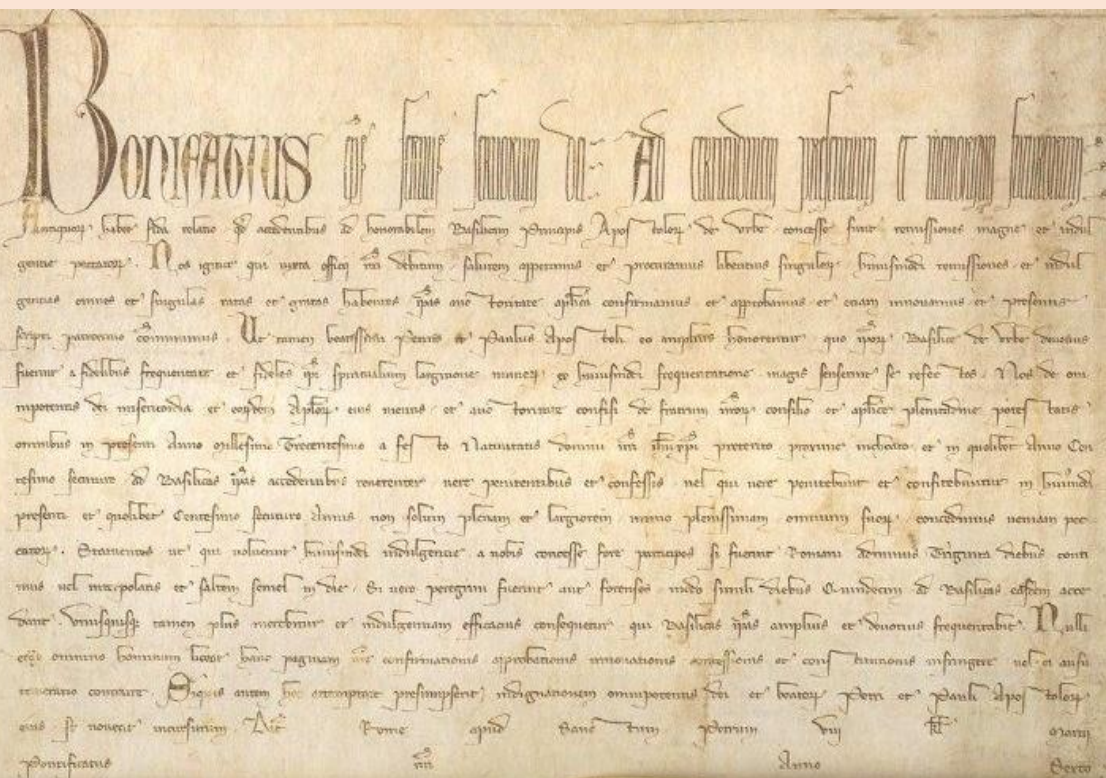 Bonifatius ep̄s seruus seruorum dei Ad certitudinem presentium et memoriam futurorum
Antiquoꝝ habet fida relatio qđ accedentibus ad honorabilem Basilicam Principis Apostoloꝝ de Vrbe concesse sunt remissiones magne et indul
gentie peccatoꝝ. Nos igitur qui iuxta officij nr̄i debitum salutem appetimus et procuramus libentius singuloꝝ huiusmodi remissiones et indul
gentias omnes et singulas ratas et gratas habentes ip̄as auctoritate apl̄ica confirmamus et approbamus et etiam innouamus et presentis
scripti patrocinio cōmunimus. Ut tamen beatissimi Petrus et Paulus Apostoli eo amplius honorentur quo ip̄oꝝ Basilice de Vrbe deuotius
fuerint a fidelibus frequentate et fideles ip̄i spiritualium largitione muneꝝ ex huiusmodi frequentatione magis senserint se refectos. Nos de om
nipotentis dei misericordia et eoꝝdem Apl̄oꝝ eius meritis et auctoritate confisi de fratrum nr̄oꝝ consilio et apl̄ice plenitudine potestatis
omnibus in presenti Anno Millesimo Trecentesimo a festo Natiuitatis domini nr̄i ih̄u xp̄i preterito proxime inchoato et in quolibet Anno Cen
tesimo secuturo ad Basilicas ip̄as accedentibus reuerenter uere penitentibus et confessis uel qui uere penitebunt et confitebuntur in huiusmodi
presenti et quolibet Centesimo secuturo Annis non solum plenam et largiorem immo plenissimam omnium suoꝝ concedimus ueniam pec
catoꝝ. Statuentes ut qui uoluerint huiusmodi indulgentie a nobis concesse fore participes si fuerint Romani adminus Triginta diebus conti
nuis uel interpolatis et saltem semel in die. Si uero peregrini fuerint aut forenses modo simili diebus Quindecim ad Basilicas easdem acce
dant. Vnusquisqꝫ tamen plus merebitur et indulgentiam efficacius consequetur qui Basilicas ip̄as amplius et deuotius frequentabit. Nulli
ergo omnino hominum liceat hanc paginam nr̄e confirmationis approbationis innouationis concessionis et constitutionis infringere uel ei ausu
temerario contraire. Siquis autem hoc attemptare presumpserit indignationem omnipotentis dei et beatoꝝ Petri et Pauli Apostoloꝝ
eius se nouerit incursurum Dat̄ Rome apud Sanctum Petrum viij kl̄ Martij
Pontificatus nr̄i Anno Sexto